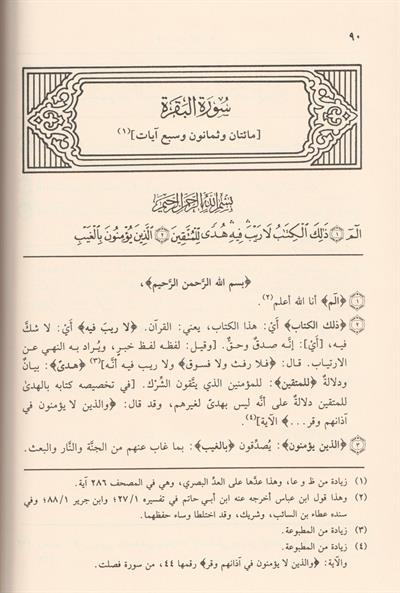 ٩٠
سُورَة البَقَرَة
[مائتان وثمانون وسبع آيات](١)
بِسْمِ اللَّهِ الرَّحْمَنِ الرَّحِيمِ
الٓمٓ ۝١ ذَٰلِكَ ٱلْكِتَٰبُ لَا رَيْبَ ۛ فِيهِ ۛ هُدًى لِّلْمُتَّقِينَ ۝٢ ٱلَّذِينَ يُؤْمِنُونَ بِٱلْغَيْبِ
﴿بسم الله الرَّحمن الرَّحيم﴾،
١ ﴿الٓم﴾ أنا الله أعلم(٢).
٢ ﴿ذلك الكتاب﴾ أَيْ: هذا الكتاب، يعني: القرآن. ﴿لا ريبَ فيه﴾ أَيْ: لا شكَّ
فيه، [أَيْ]: إِنَّه صدقٌ وحقٌّ. [وقيل: لفظه لفظ خبرٍ، ويُراد به النهي عن
الارتياب. قال: ﴿فلا رفث ولا فسوق﴾ ولا ريب فيه أنَّه](٣) ﴿هدىً﴾: بيانٌ
ودلالةٌ ﴿للمتقين﴾: للمؤمنين الذي يتَّقون الشِّرْك. [في تخصيصه كتابه بالهدىٰ
للمتقين دلالةٌ على أنَّه ليس بهدىً لغيرهم، وقد قال: ﴿والذين لا يؤمنون في
آذانهم وقر...﴾ الآية](٤).
٣ ﴿الذين يؤمنون﴾: يُصدِّقون ﴿بالغيب﴾: بما غاب عنهم من الجنَّة والنَّار والبعث.
(١) زيادة من ظ و عا، وهذا عدُّها على العدِّ البصري، وهي في المصحف ٢٨٦ آية.
(٢) وهذا قول ابن عباس أخرجه عنه ابن أبي حاتم في تفسيره ٢٧/١؛ وابن جرير ٨٨/١؛ وفي
سنده عطاء بن السائب، وشريك، وقد اختلطا وساء حفظهما.
(٣) زيادة من المطبوعة.
(٤) زيادة من المطبوعة.
والآية: ﴿والذين لا يؤمنون في آذانهم وقر﴾ رقمها ٤٤، من سورة فصلت.